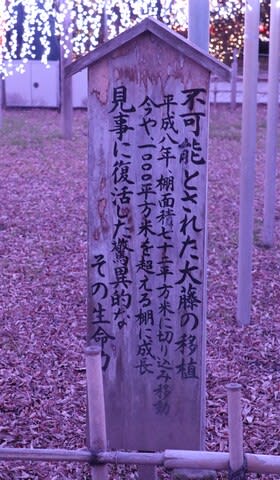 不可能とされた大藤の移植
平成八年、棚面積七十二平方米に切り込み移動
今や、一〇〇〇平方米を超える棚に成長
見事に復活した驚異的な
その生命力